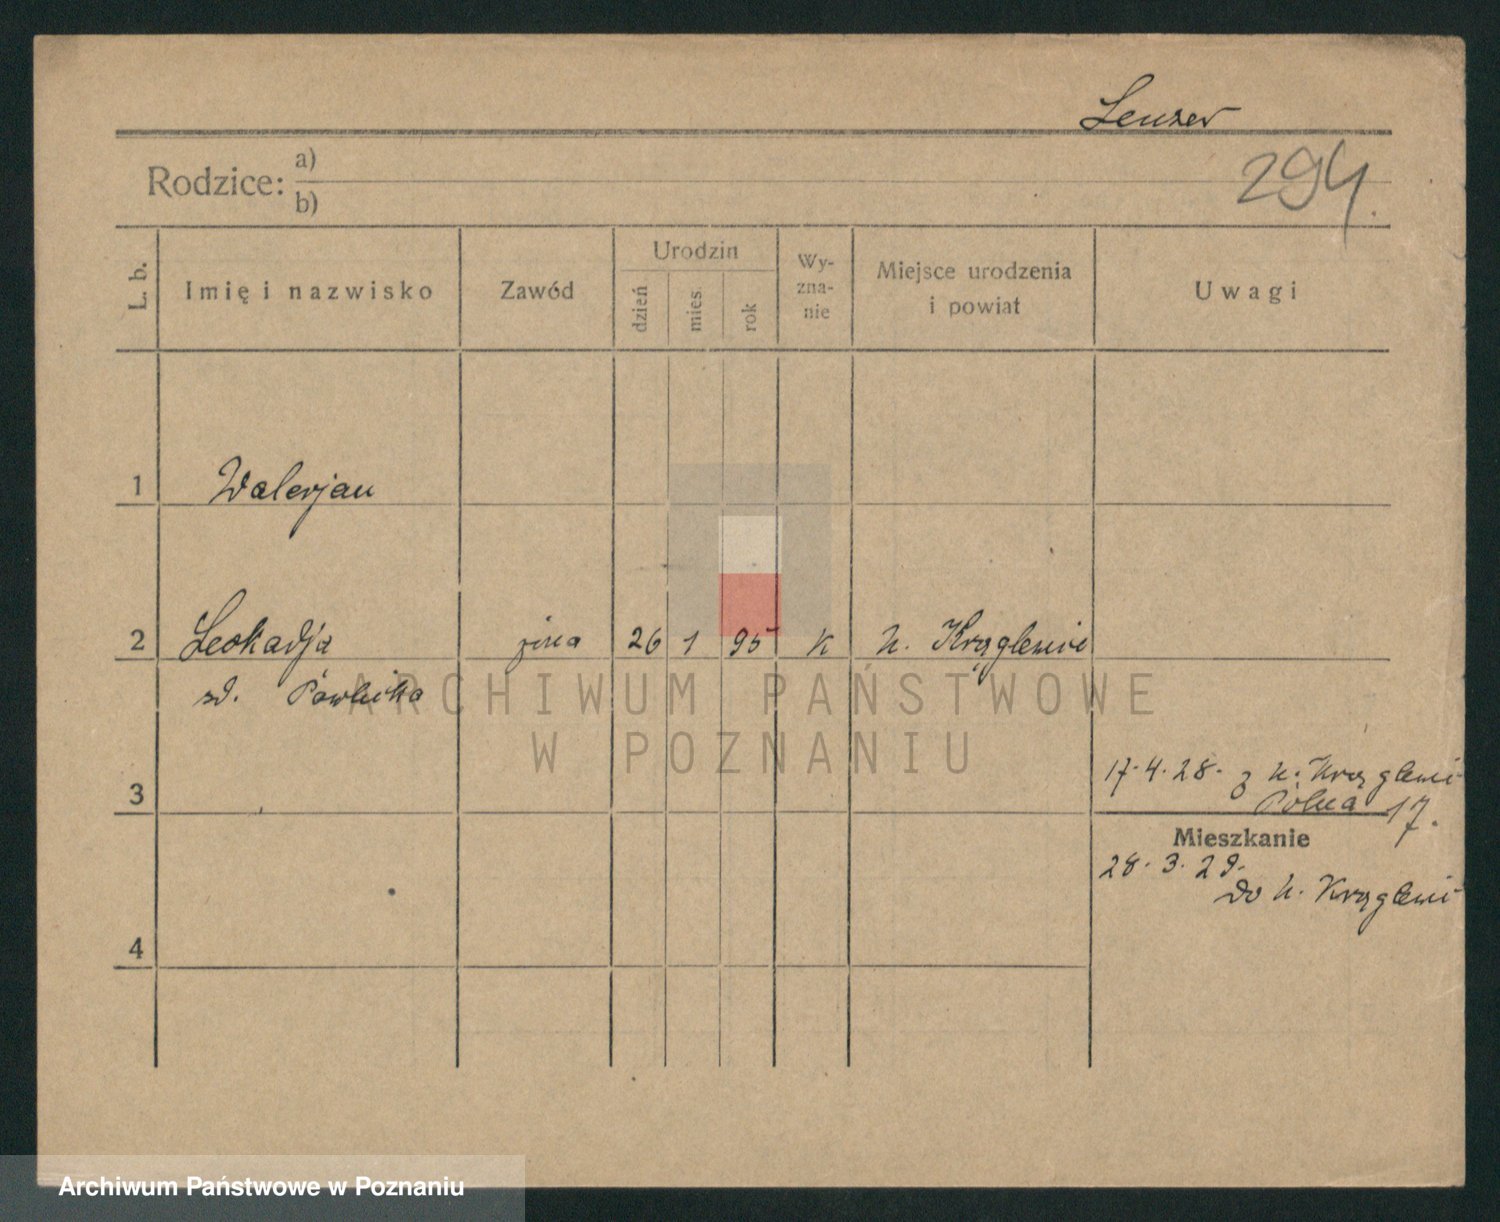 Lenzer
294.
Rodzice: a)
b)
L. b. Imię i nazwisko Zawód Urodzin dzień mies. rok Wy-zna-nie Miejsce urodzenia i powiat Uwagi
1 Walerjan
2 Leokadja żona 26 1 95 K N. Krąglewie
zd. Pawlicka
ARCHIWUM PAŃSTWOWE
W POZNANIU
17.4.28. z N. Krąglewi
3 Polna 17.
Mieszkanie
28.3.29.
do N. Krąglewi
4
Archiwum Państwowe w Poznaniu